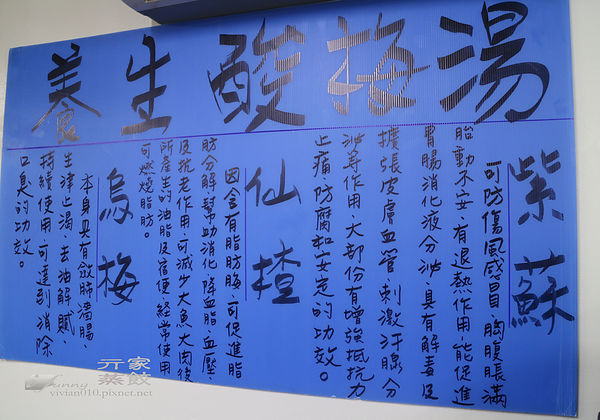 養生酸梅湯
紫蘇
可防傷風感冒、胸腹脹滿
胎動不安、有退熱作用、能促進
胃腸消化液分泌、具有解毒及
擴張皮膚血管、刺激汗腺分
泌等作用、大部份有增強抵抗力
止痛防腐和安定的功效。
仙楂
因含有脂肪酶、可促進脂
肪分解幫助消化、降血脂、血壓、
及抗老作用、可減少大魚大肉後
所產生的油脂及宿便、經常使用
可燃燒脂肪。
烏梅
本身具有斂肺濇腸
生津止渴、去油解膩、
持續使用、可達到消除
口臭的功效。
亓家
蒸餃
Funny
vivian010.pixnet.net